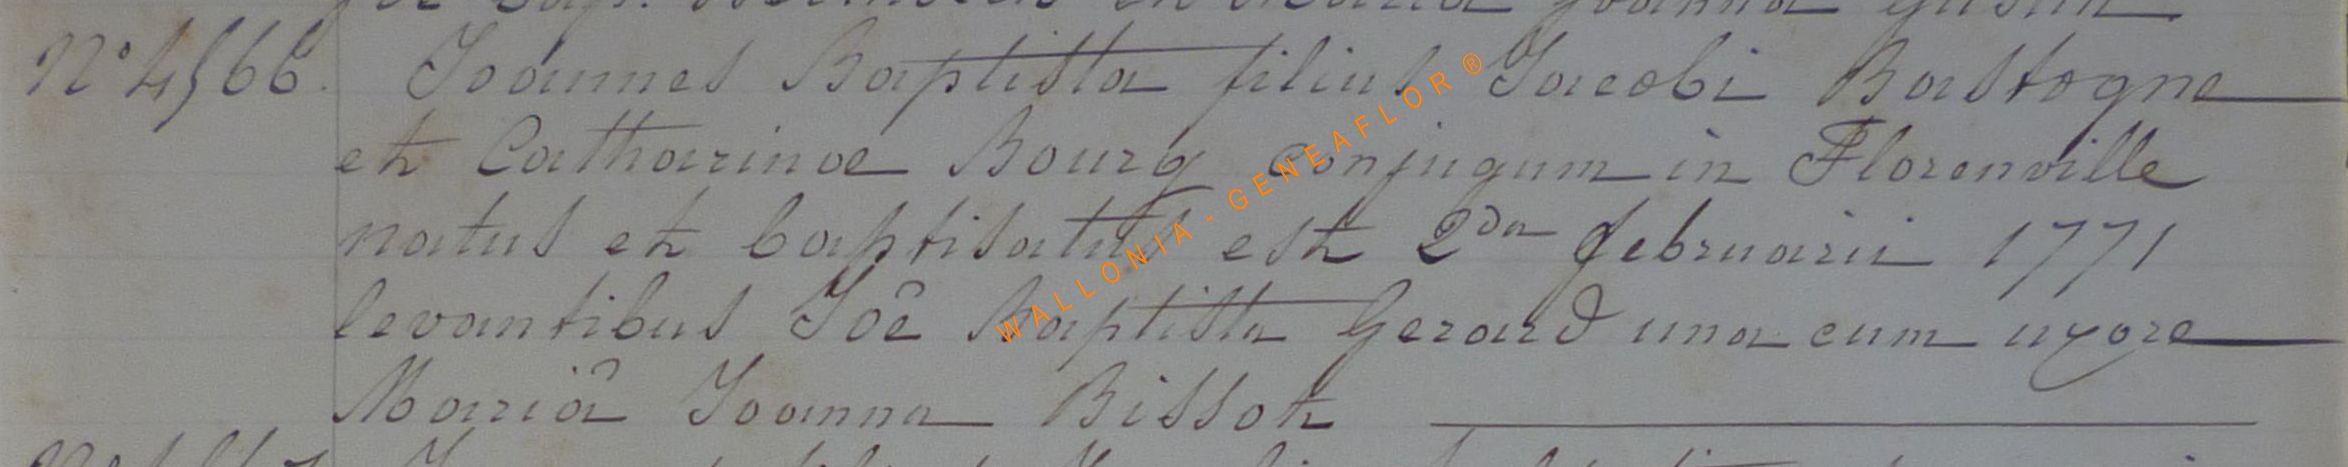 Joanna
N° 4566. Joannes Baptista filius Jacobi Bastogne
et Catharinae Bourg conjugum in Florenville
natus et baptisatus est 2da februarii 1771
levantibus Joê Baptista Gerard una cum uxore
Mariâ Joanna Bissot
WALLONIA - GENEAFLOR ®